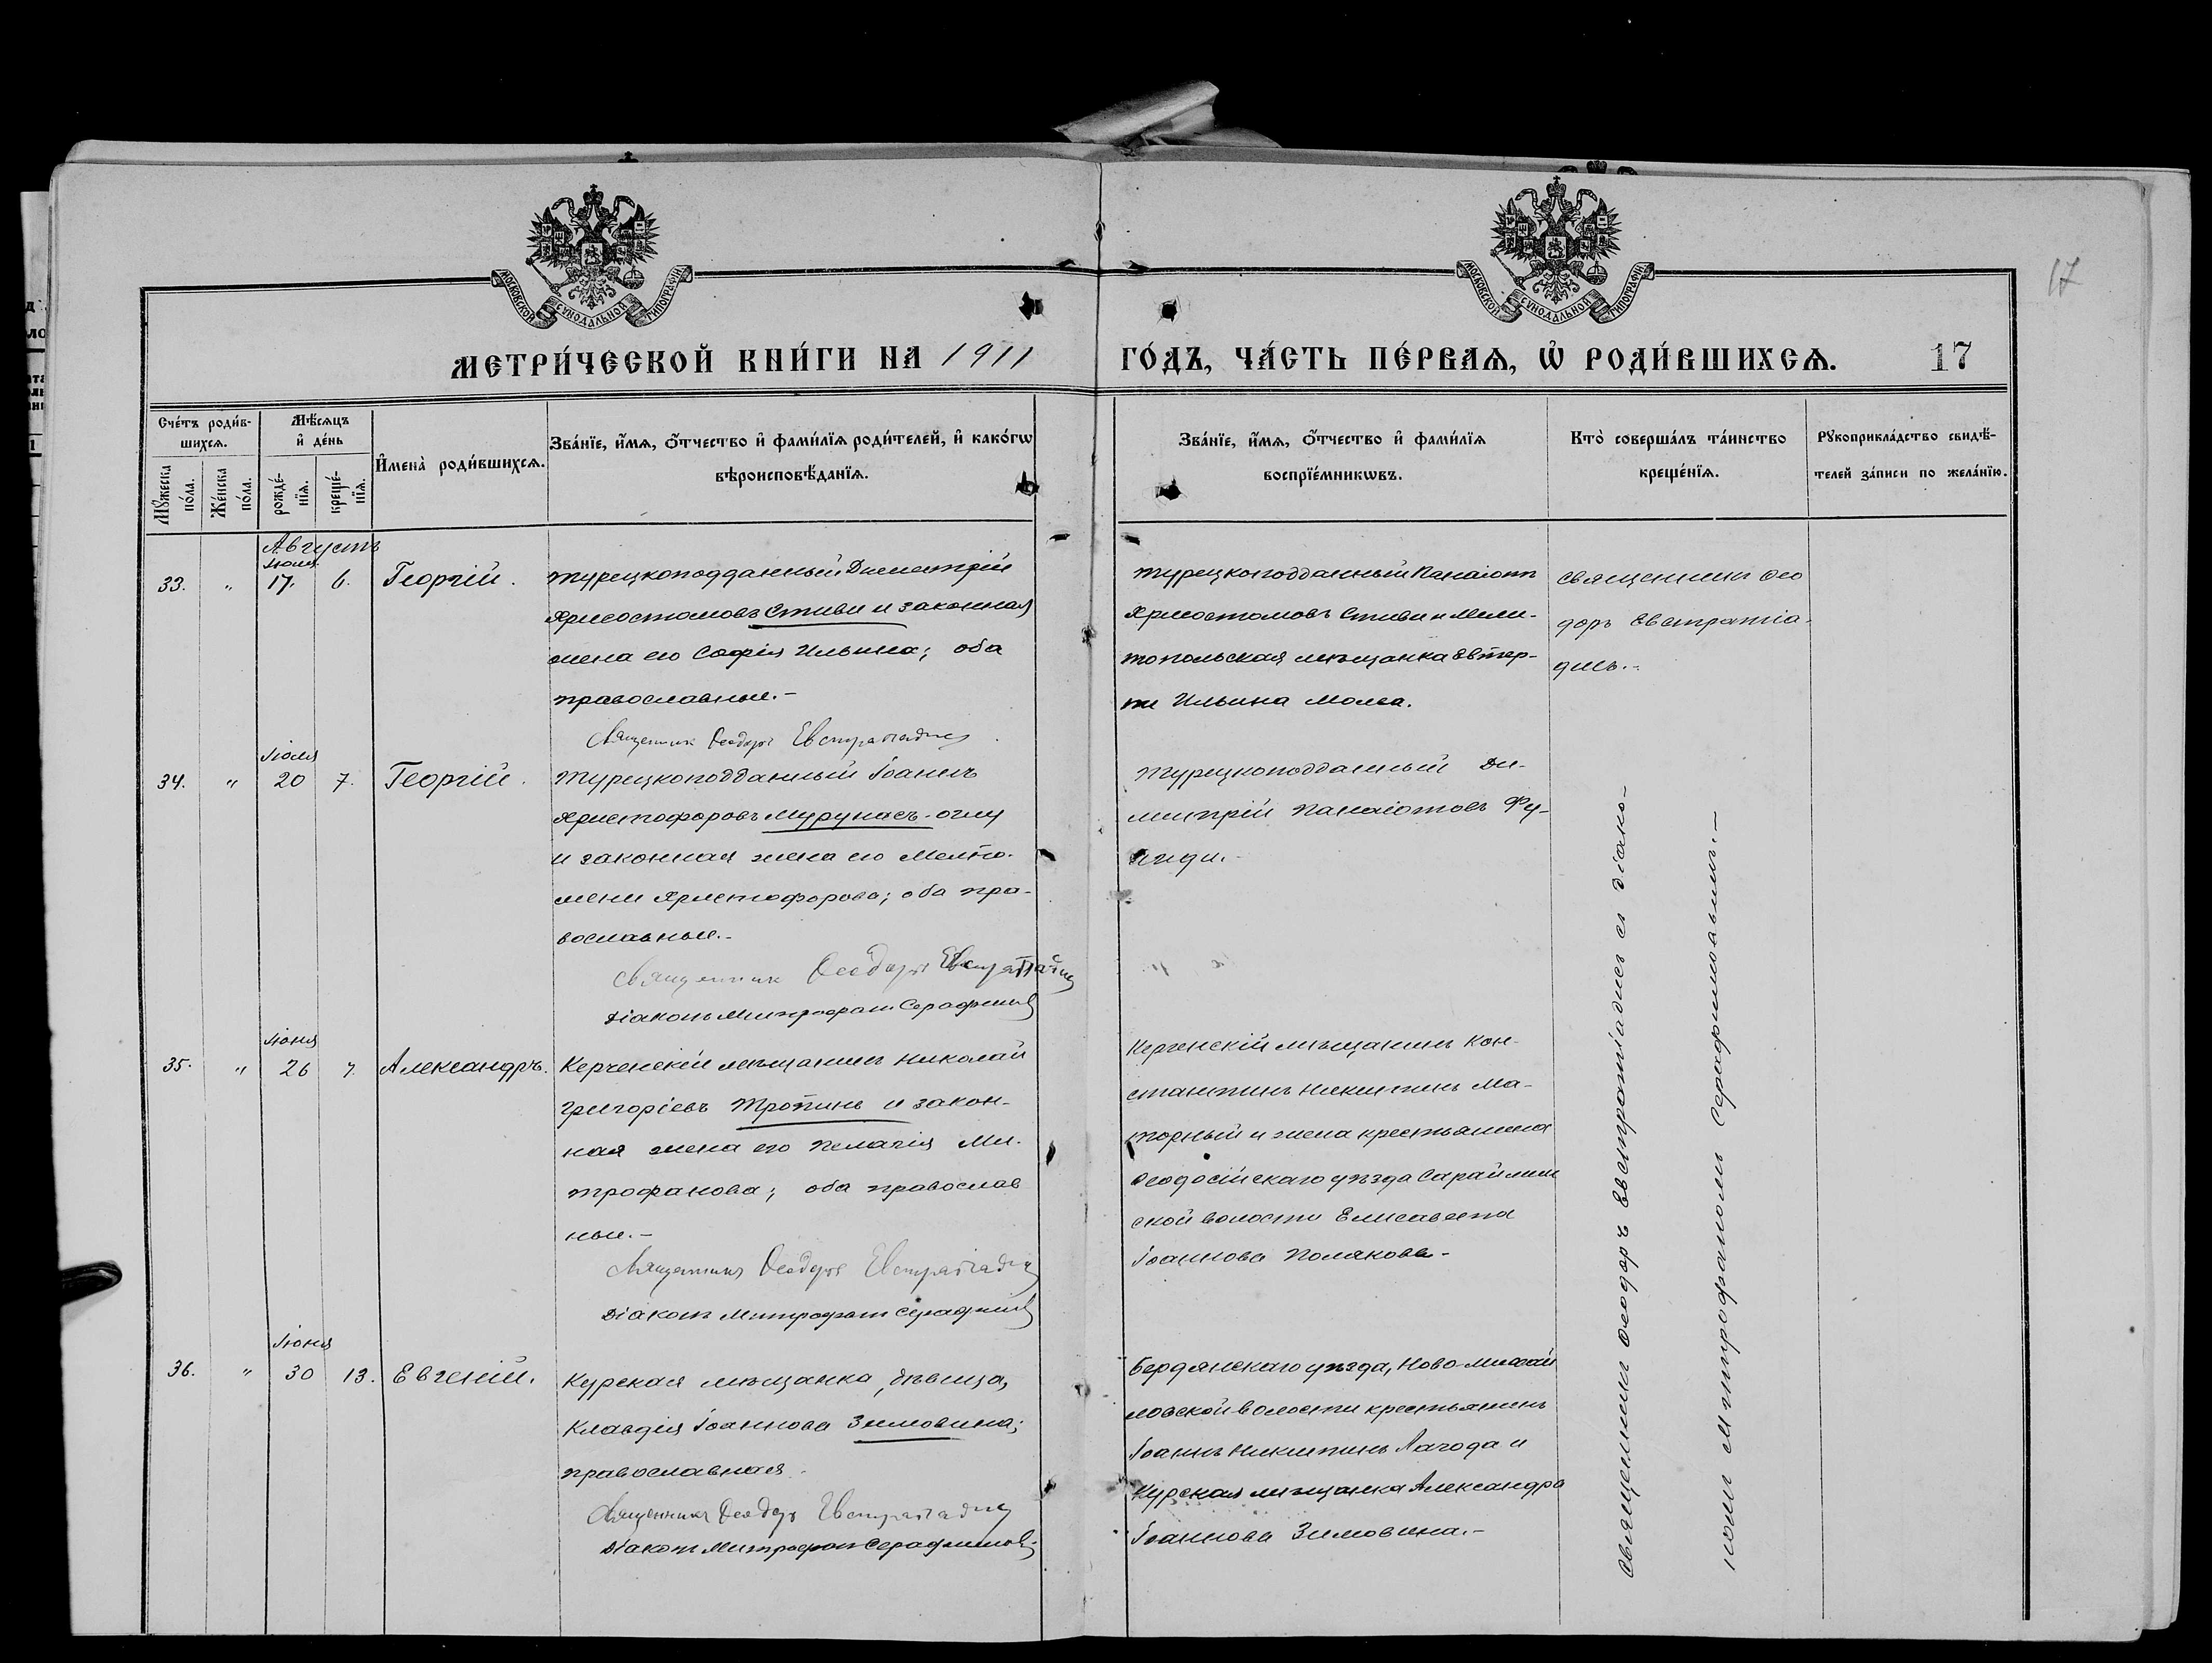 17
МОСКОВСКОЙ СѴНОДАЛЬНОЙ ТИПОГРАФІИ
МОСКОВСКОЙ СѴНОДАЛЬНОЙ ТИПОГРАФІИ
МЕТРИ́ЧЕСКОЙ КНИ́ГИ НА 1911 ГО́ДЪ, ЧА́СТЬ ПЕ́РВАѦ, Ѡ҆ РОДИ́ВШИХСѦ. 17
Сче́тъ роди́в-
шихсѧ.
Мꙋ́жеска
по́ла.
Же́нска
по́ла.
Мѣ́сѧцъ
и҆ де́нь
рожде́-
нїѧ.
креще́-
нїѧ.
И҆мена̀ роди́вшихсѧ.
Зва́нїе, и҆́мѧ, ѻ҆́тчество и҆ фами́лїѧ роди́телей, и҆ како́гѡ
вѣроисповѣ́данїѧ.
Зва́нїе, и҆́мѧ, ѻ҆́тчество и҆ фами́лїѧ
воспрїе́мникѡвъ.
Кто̀ соверша́лъ та́инство
креще́нїѧ.
Рꙋкоприкла́дство свидѣ́-
телей за́писи по жела́нїю.
Августъ
Іюля
33. " 17. 6. Георгій.
Турецкоподданный Димитрій
Хрисостомовъ Стиви и законная
жена его Софія Ильина; оба
православные.-
Священникъ Ѳеодоръ Евстратіадисъ
Турецкоподданный Панаіотъ
Хрисостомовъ Стиви и Мели-
топольская мѣщанка Евтер-
пи Ильина
Священникъ Ѳео
доръ Евстратіа-
дисъ.-
Іюля
34. " 20 7. Георгій.
Турецкоподданный Іоаннъ
Христофоровъ Мурунасъ-оглу
и законная жена его Мельпо-
мени Христофорова; оба пра-
вославные.-
Священникъ Ѳеодоръ Евстратіадисъ
Діаконъ Митрофанъ Серафимовъ
Турецкоподданный Ди-
митрій Панаіотовъ Фу-
Іюня
35. " 26 7. Александръ.
Керченскій мѣщанинъ Николай
Григоріевъ Тропинъ и закон-
ная жена его Пелагія Ми-
трофанова; оба православ
ные.-
Священникъ Ѳеодоръ Евстратіадисъ
Діаконъ Митрофанъ Серафимовъ
Керченскій мѣщанинъ Кон-
стантинъ Никитинъ Ма-
торный и жена крестьянина
Ѳеодосійскаго уѣзда Сараймин
ской волости Елисавета
Іоаннова Полякова-
Іюня
36. " 30 13. Евгеній.
Курская мѣщанка, дѣвица,
Клавдія Іоаннова Зимовина;
православная.
Священникъ Ѳеодоръ Евстратіадисъ
Діаконъ Митрофанъ Серафимовъ.
Бердянскаго уѣзда, Ново-Михай
ловской волости крестьянинъ
Іоаннъ Никитинъ Лагода и
Курская мѣщанка Александра
Іоаннова Зимовина.-
Священникъ Ѳеодоръ Евстратіадисъ съ діако-
номъ Митрофаномъ Серафимовымъ.-